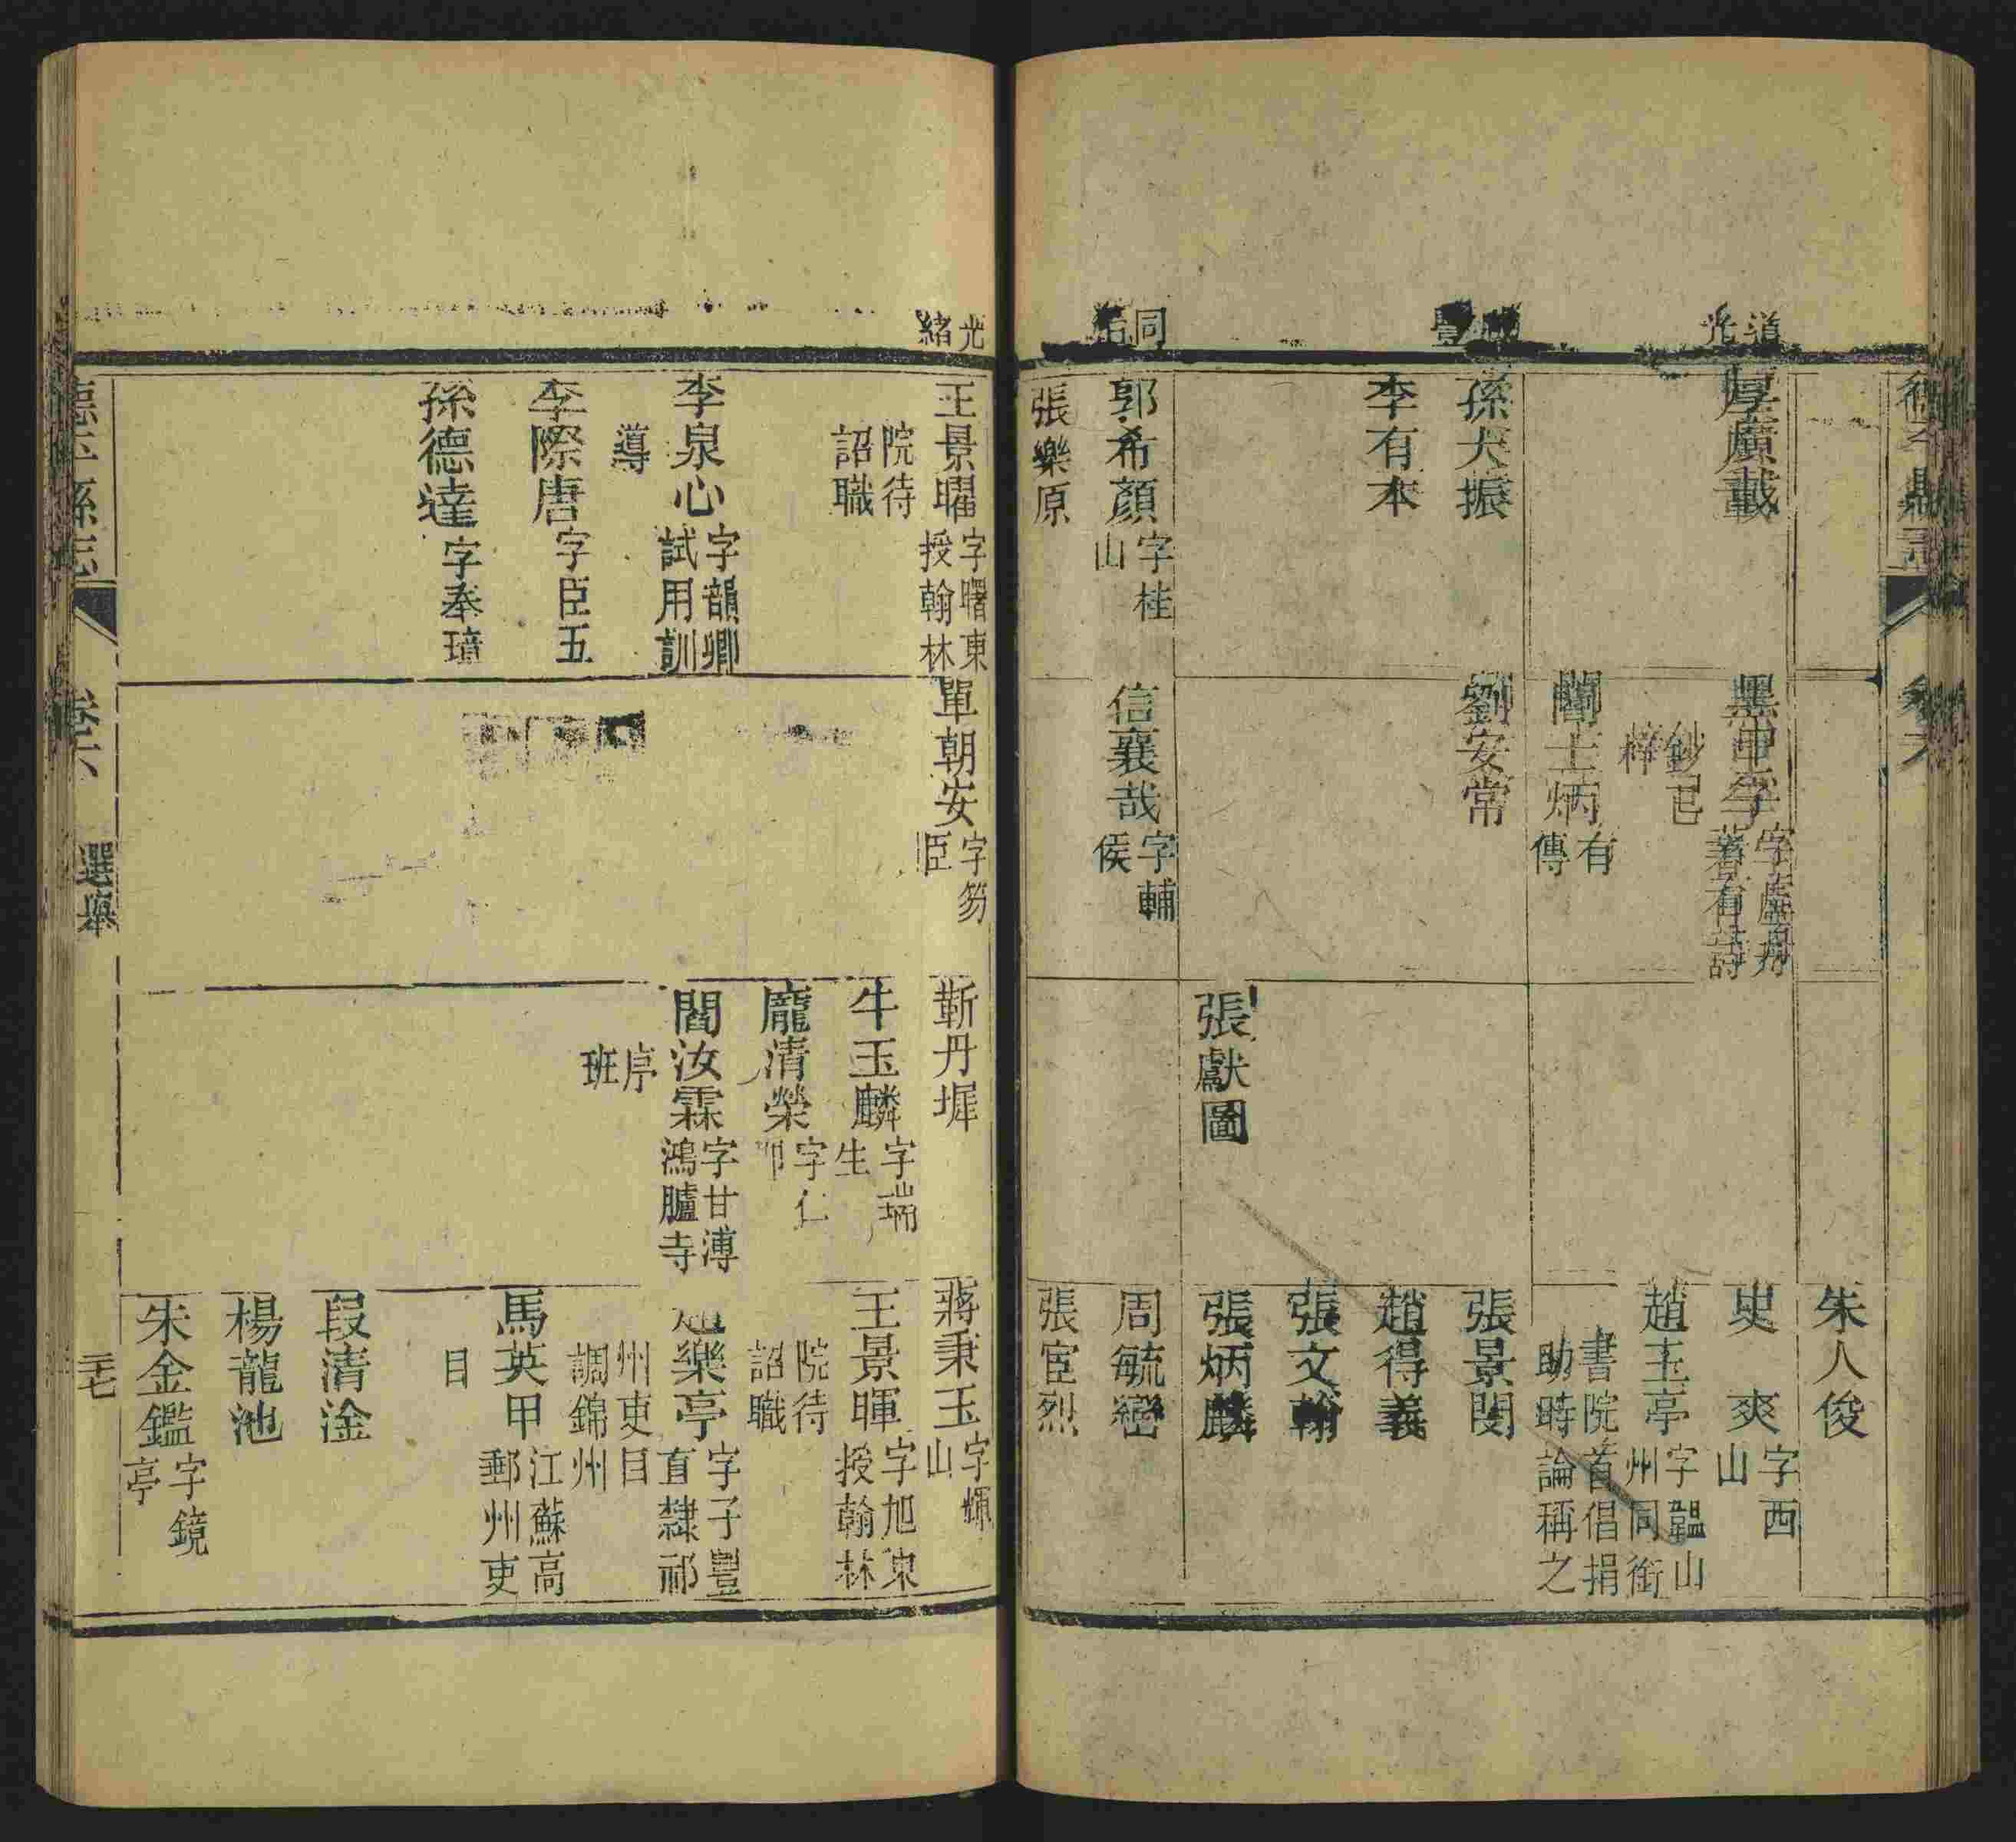 道光
厚廣載
黑甲寅
著有詩
鈔已梓
閻士炳有傳
朱人俊
史爽字西山
趙玉亭字韞山州同銜
書院首倡捐助時論稱之
孫大振
李有本
劉安常
張獻圖
張景閔
趙得義
張文翰
張炳麟
同治
郭希顏字桂山
張樂原
信襄哉字輔侯
周毓巒
張宦烈
光緒
王景曜字曙東授翰林院待詔職
李泉心字韻卿試用訓導
李際唐字臣五
孫德達字奉璋
單朝安字笏臣
靳丹墀
牛玉麟字瑞生
龐清榮字仁
閻汝霖字甘溥鴻臚寺序班
蔣秉玉字輝山
王景暉字旭東授翰林院待詔職
樂亭字子豐直隸祁州吏目調錦州
馬英甲江蘇高郵州吏目
段清淦
楊龍池
朱金鑑字鏡亭
德平縣志
卷六
選舉
二十七